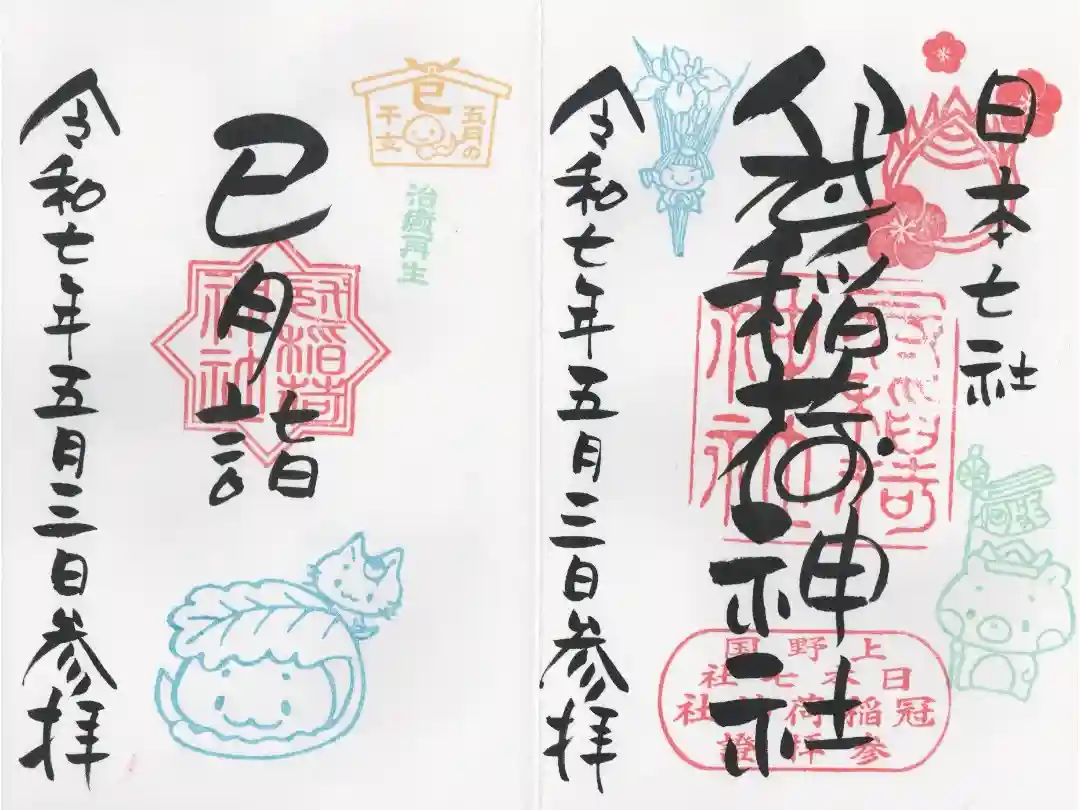 日本七社
冠稲荷神社
冠稲荷神社
上野国
日本七社
冠稲荷神社
参拝證
令和七年五月三日参拝
五月の
巳
干支
治癒再生
巳月詣
冠稲荷
神社
令和七年五月三日参拝